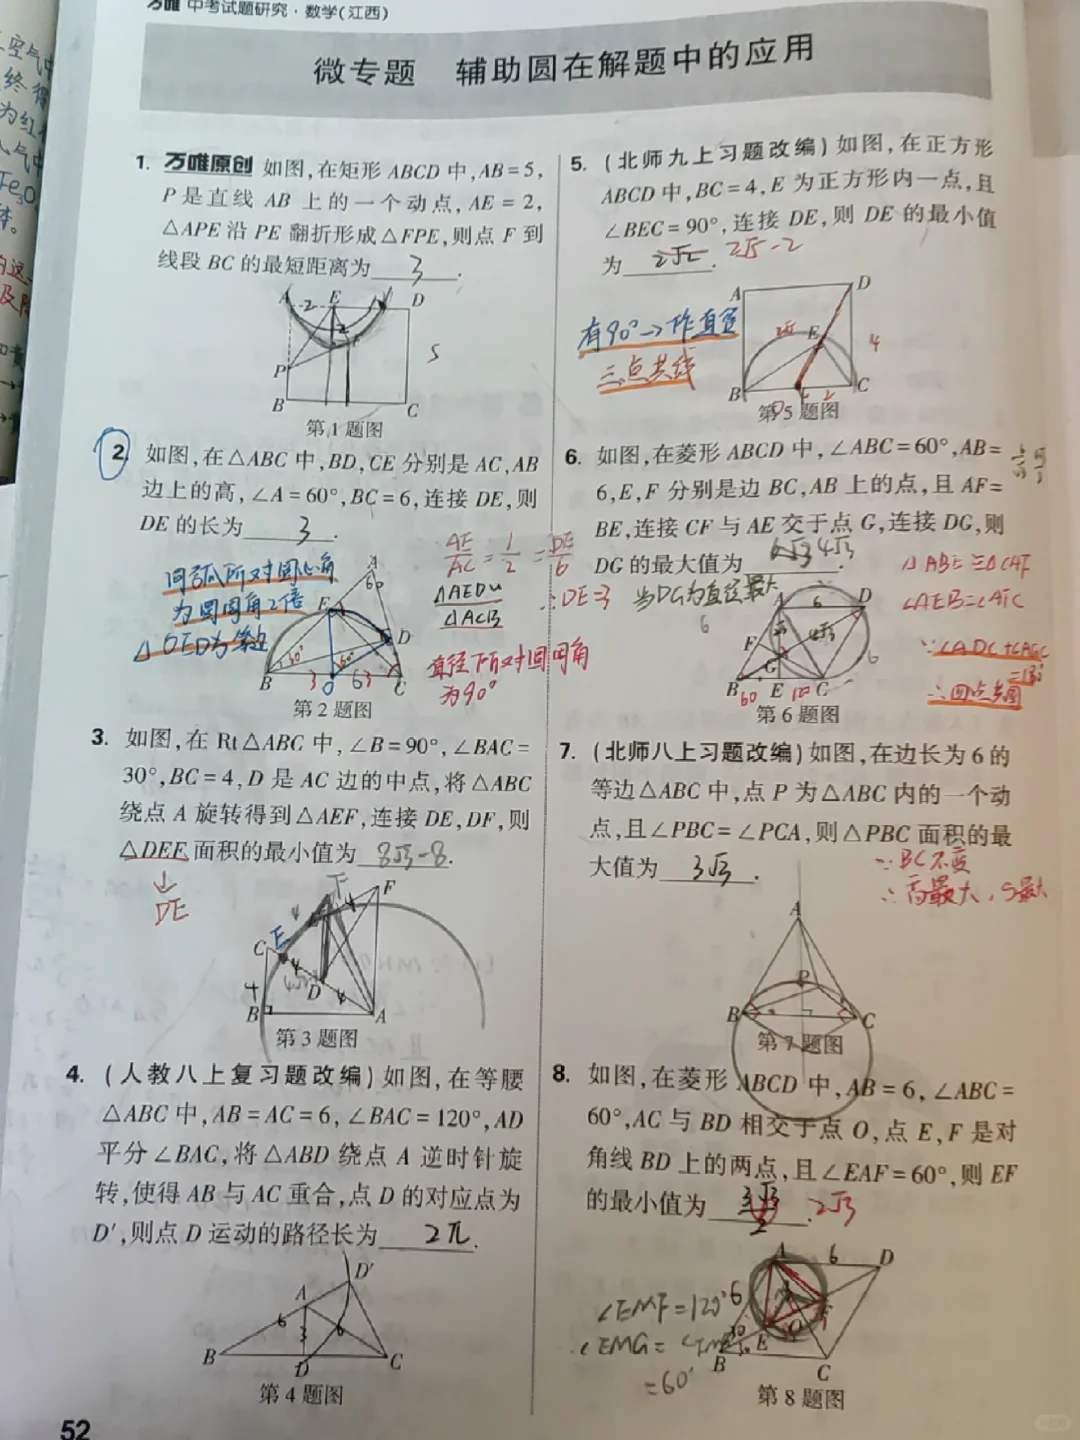 万唯 中考试题研究·数学(江西)
微专题 辅助圆在解题中的应用
1. 万唯原创 如图,在矩形 ABCD 中,AB=5,
P 是直线 AB 上的一个动点,AE=2,
△APE 沿 PE 翻折形成△FPE,则点 F 到
线段 BC 的最短距离为 3 .
A 2 E D
2
5
P
B C
第1题图
2. 如图,在△ABC 中,BD,CE 分别是 AC,AB
边上的高,∠A=60°,BC=6,连接 DE,则
DE 的长为 3 .
同弧所对圆心角
为圆周角2倍
△OED为等边
AE/AC=1/2=DE/6
△AED∽
△ACB
∴DE=3
直径所对圆周角
为90°
A
60
E
D
60° 60°
B 3 O 6 3 C
第2题图
3. 如图,在 Rt△ABC 中,∠B=90°,∠BAC=
30°,BC=4,D 是 AC 边的中点,将△ABC
绕点 A 旋转得到△AEF,连接 DE,DF,则
△DEF 面积的最小值为 8√3-8 .
↓
DE
F F
4 4
C E
4
4 D 4
B A
第3题图
4. (人教八上复习题改编)如图,在等腰
△ABC 中,AB=AC=6,∠BAC=120°,AD
平分∠BAC,将△ABD 绕点 A 逆时针旋
转,使得 AB 与 AC 重合,点 D 的对应点为
D′,则点 D 运动的路径长为 2π .
D′
A
6 3 6
B D C
第4题图
5. (北师九上习题改编)如图,在正方形
ABCD 中,BC=4,E 为正方形内一点,且
∠BEC=90°,连接 DE,则 DE 的最小值
为 2√2 . 2√5-2
有90°→作直径
三点共线
A D
2√5 E
4
B 2 C
第5题图
6. 如图,在菱形 ABCD 中,∠ABC=60°,AB=
6,E,F 分别是边 BC,AB 上的点,且 AF=
BE,连接 CF 与 AE 交于点 G,连接 DG,则
DG 的最大值为 6√3 4√3 .
当DG为直径最大
△ABE≌△CAF
∠AEB=∠AFC
∵∠ADC+∠AGC
=180°
∴四点共圆
A 6 D
6
F 4√3
G 6
B 60 E 120 C
第6题图
7. (北师八上习题改编)如图,在边长为 6 的
等边△ABC 中,点 P 为△ABC 内的一个动
点,且∠PBC=∠PCA,则△PBC 面积的最
大值为 3√3 .
∵BC不变
∴高最大,S最大
A
P
B C
第7题图
8. 如图,在菱形 ABCD 中,AB=6,∠ABC=
60°,AC 与 BD 相交于点 O,点 E,F 是对
角线 BD 上的两点,且∠EAF=60°,则 EF
的最小值为 3√3/2 . 2√3
∠EMF=120°
=60°
A 6 D
6
F
O
30 E
B C
第8题图
52